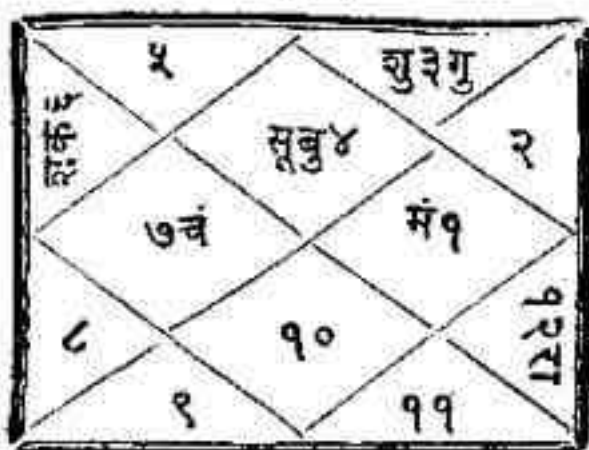 ५
शु३गु
शके६
सूबु४
२
७चं
मं१
८
१०
१२रा
९
११